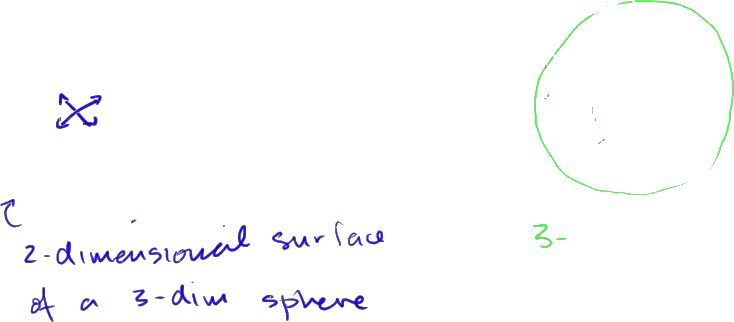 2-dimensional surface
of a 3-dim sphere
3-